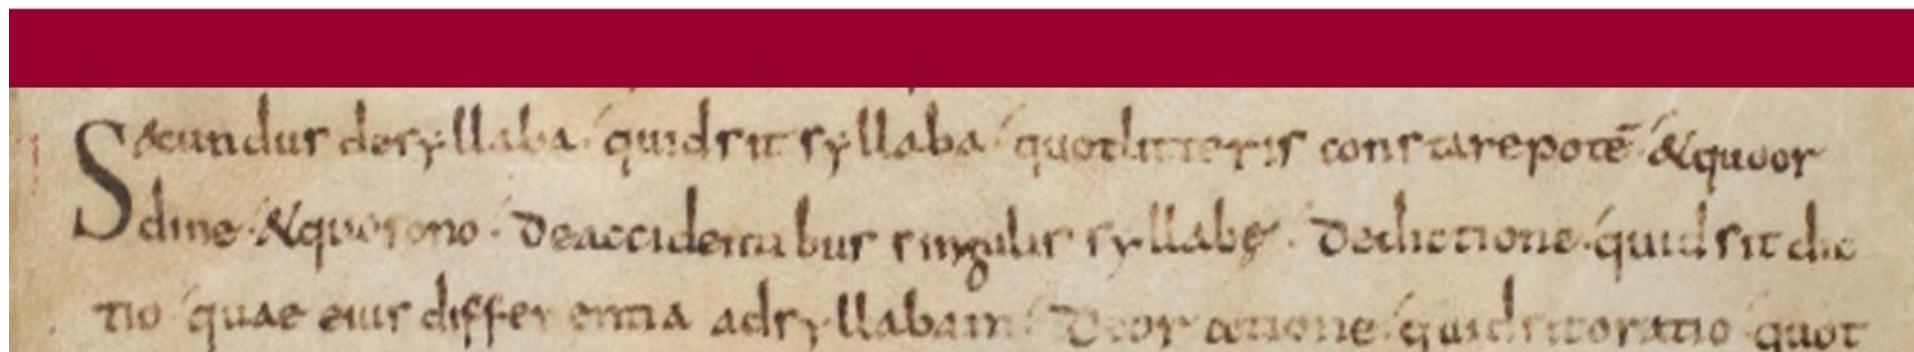 Secundus de syllaba · quid sit syllaba · quot litteris constare potē · & quo or
dine · & quo sono · De accidentibus singulis syllabę · De dictione · quid sit dic
tio quae eius differentia ad syllabam · De oratione · quid sit oratio quot